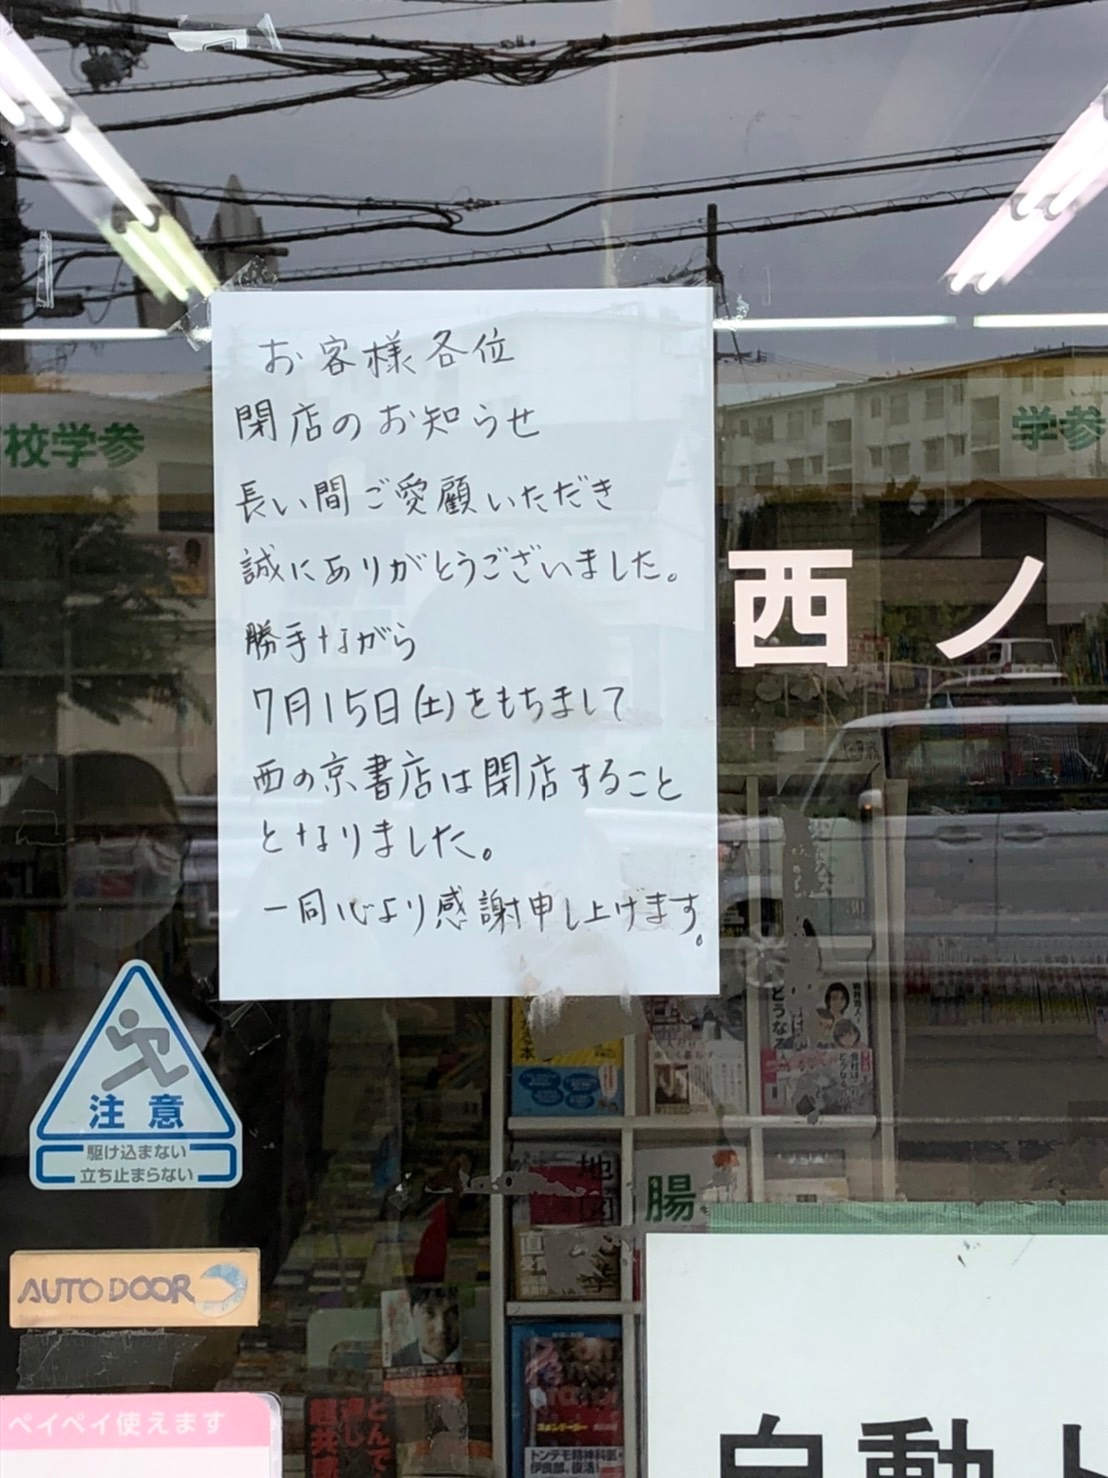 お客様各位
閉店のお知らせ
長い間ご愛顧いただき
誠にありがとうございました。
勝手ながら
7月15日(土)をもちまして
西の京書店は閉店すること
となりました。
一同心より感謝申し上げます。
校学参
学参
西ノ
注意
駆け込まない
立ち止まらない
AUTO DOOR
ペイペイ使えます
どうなる
地図
腸
トンデモ精神科医・
伊良部、復活!
自動ド